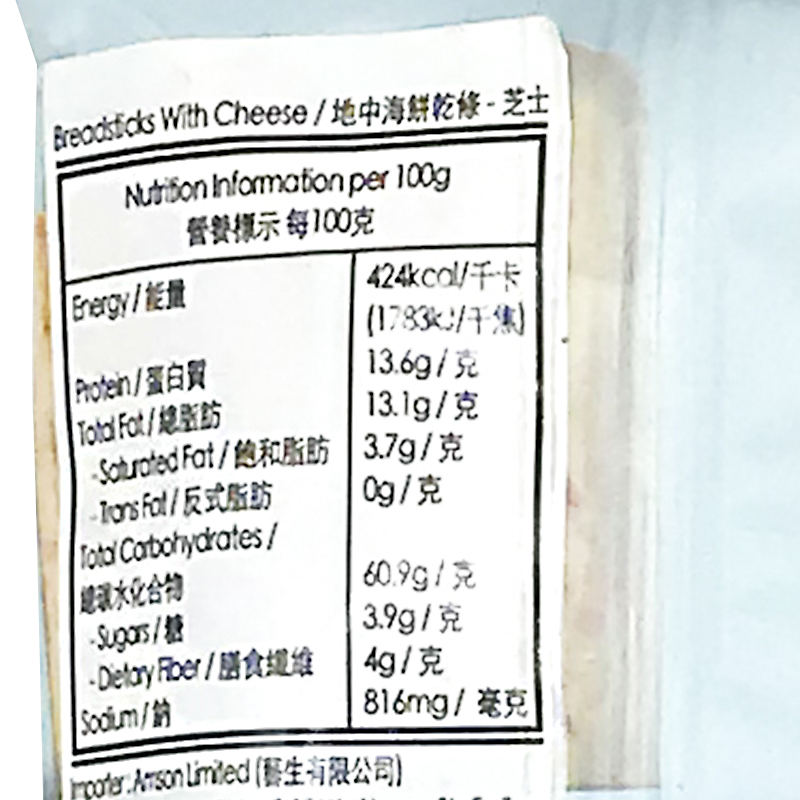 Breadsticks With Cheese / 地中海餅乾條 - 芝士
Nutrition Information per 100g
營養標示 每100克
Energy / 能量 424kcal/千卡
(1783kJ/千焦)
Protein / 蛋白質 13.6g / 克
Total Fat / 總脂肪 13.1g / 克
-Saturated Fat / 飽和脂肪 3.7g / 克
-Trans Fat / 反式脂肪 0g / 克
Total Carbohydrates /
總碳水化合物 60.9g / 克
-Sugars / 糖 3.9g / 克
-Dietary Fiber / 膳食纖維 4g / 克
Sodium / 鈉 816mg / 毫克
Importer : Arrson Limited (藝生有限公司)